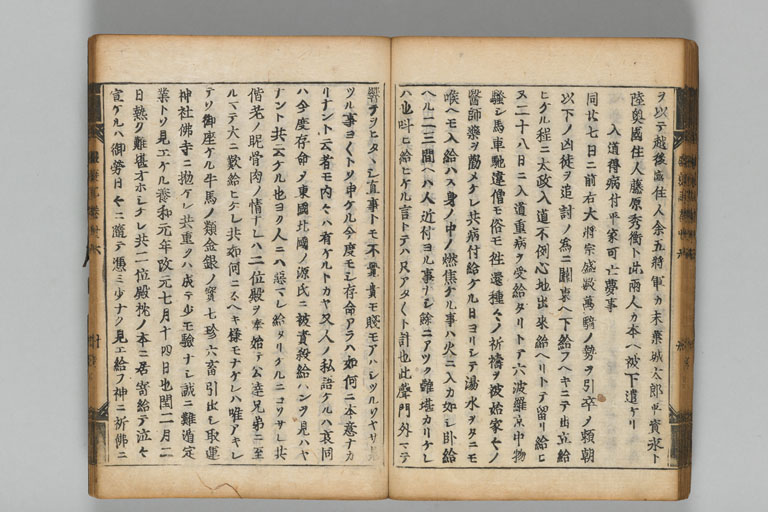 ヲ以テ越後國住人余五將軍カ末葉城太郎平資永ト
陸奥國住人藤原秀衡ト此兩人カ本ヘ被下遣ケリ
入道得病付平家可亡夢事
同廿七日ニ前右大將宗盛數萬騎ノ勢ヲ引卒ノ頼朝
以下ノ凶徒ヲ追討ノ為ニ關東ヘ下給フヘキニテ出立給
ヒケル程ニ太政入道不例心地出來給ヘリトテ留リ給ヒ
ヌ二十八日ニ入道重病ヲ受給タリトテ六波羅京中物
騒シ馬車馳違僧モ俗モ往還種々ノ祈禱ヲ被始家々ノ
醫師藥ヲ勸メケレ共病付給ケル日ヨリシテ湯水ヲタニモ
喉ヘモ入給ハス身ノ中ノ燃焦ケル事ハ火ニ入カ如シ臥給
ヘル二三間ヘハ人近付ヨル事ナシ餘ニアツク難堪カリケレ
ハ也叫ヒ給ヒケル言トテハ只アタ〱ト計也此聲門外マテ
響ヲヒタヽシ直事トモ不覺貴モ賤モアハシツルハヤサ
ツル事ヨ〱トソ申ケル今度モシ存命アラハ如何ニ本意ナカ
リナント云者モ内々ハ有ケルトカヤ又人ノ私語ケルハ哀同
ハ今度存命ノ東國北國ノ源氏ニ被責殺給ハンヲ見ハヤ
ナント共云ケル也ヨク人ニハ惡マレ給タリケルニコソサレ共
偕老ノ昵骨肉ノ情ナレハ二位殿ヲ奉始テ公達兄弟ニ至
ルマテ大ニ歎給ヒケレ共如何ニスヘキ樣モナケレハ唯アキレ
テソ御座ケル牛馬ノ類金銀ノ寶七珍六畜引出シ取運
神社佛寺ニ抛ケレ共重クハ成テ少モ驗ナシ誠ニ難遁定
業トソ見エケル養和元年改元七月十四日也閏二月二
日熱ク難堪オホシケレ共二位殿枕ノ本ニ居寄給テ泣々
宣ケルハ御勞日々ニ隨テ憑ミ少ナク見エ給フ神ニ祈佛ニ